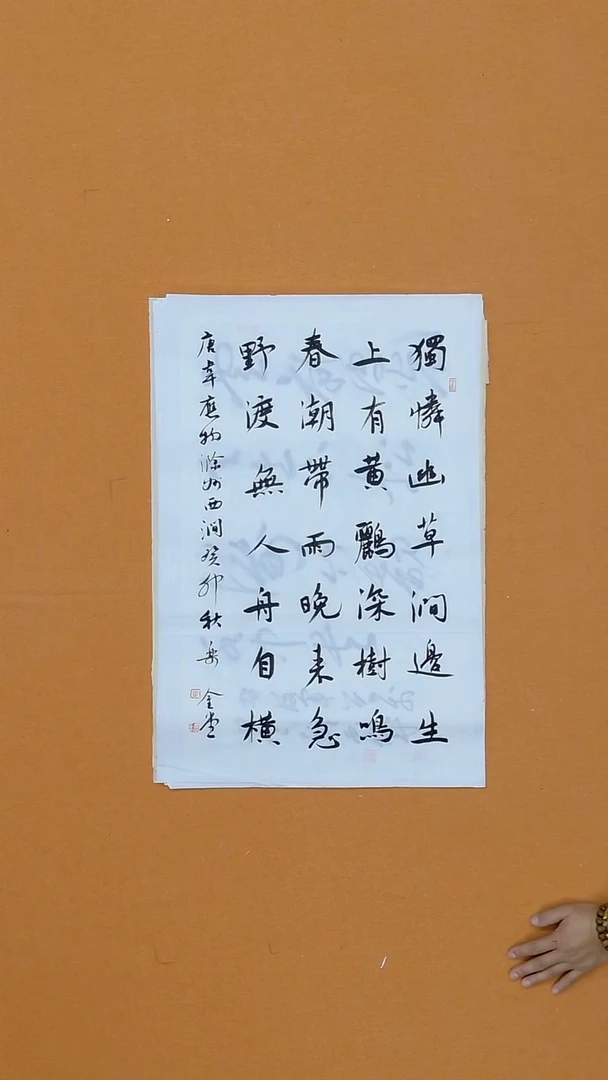 獨憐幽草澗邊生
上有黄鸝深樹鳴
春潮帶雨晚来急
野渡無人舟自横
唐韋應物滁州西澗癸卯秋